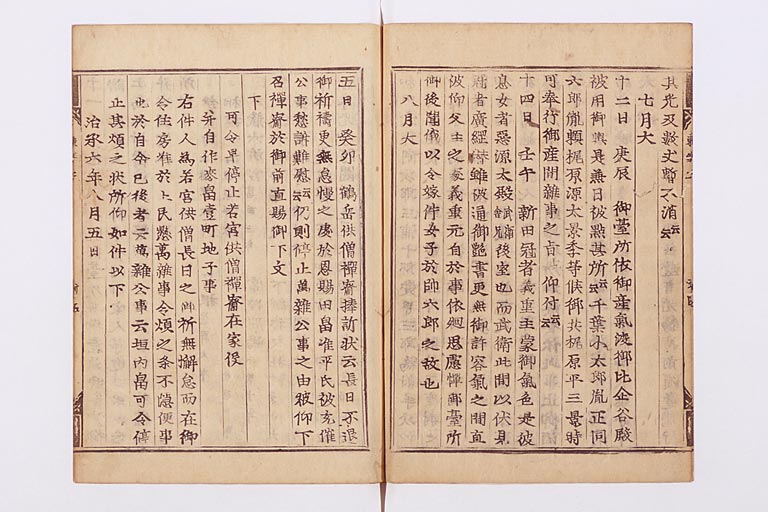 其光及數丈暫不消云云
七月大
十二日 庚辰 御臺所依御産氣渡御比企谷殿
被用御輿是兼日被點其所云云千葉小太郎胤正同
六郎胤頼梶原源太景季等候御共梶原平三景時
可奉行御産間雜事之旨被仰付云云
十四日 壬午 新田冠者義重主蒙御氣色是彼
息女者惡源太殿武衛舎兄後室也而武衛此間以伏見
冠者廣綱潜雖被通御艶書更無御許容氣之間直
被仰父主之處義重元自於事依廻思慮憚御臺所
御後聞俄以令嫁件女子於師六郎之故也
八月大
五日 癸卯 鶴岳供僧禪睿捧訴状云長日不退
御祈禱更無怠慢之處於恩賜田畠准平氏被充催
公事愁訴難慰云云仍則停止萬雜公事之由被仰下
召禪睿於御前直賜御下文
下
可令早停止若宮供僧禪睿在家役
幷自作麥畠壹町地子事
右件人爲若宮供僧長日之御祈無懈怠而在御
令住房雖於 民愁萬雜事令煩之條不隱便事
也於自今已後者云萬雜公事云垣内畠可令停
止其煩之状所仰如件以下
治承六年八月五日